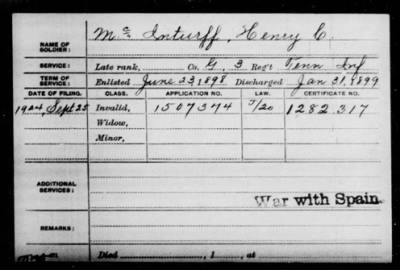 NAME OF SOLDIER: Mc Inturff, Henry C.
SERVICE: Late rank, Co. G, 3 Reg't Tenn Inf
TERM OF SERVICE: Enlisted June 23, 1898 Discharged Jan 31, 1899
DATE OF FILING. CLASS. APPLICATION NO. LAW. CERTIFICATE NO.
1924, Sept 25 Invalid, 1507374 1282.317
Widow,
Minor,
ADDITIONAL SERVICES:
War with Spain
REMARKS:
Died , 1 , at